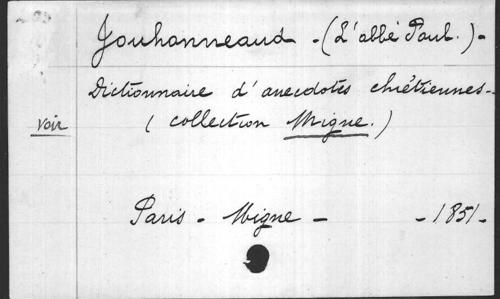 Jouhanneaud - (L'abbé Paul.) -
Dictionnaire d'anecdotes chrétiennes -
voir (collection Migne.)
Paris - Migne - - 1851 -